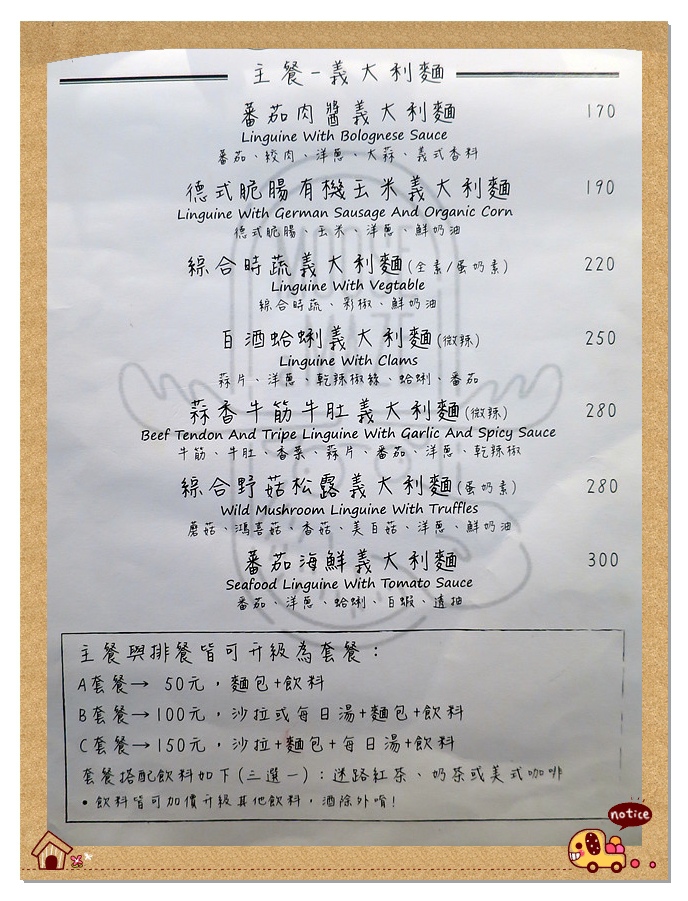 主餐-義大利麵
番茄肉醬義大利麵 170
Linguine With Bolognese Sauce
番茄、絞肉、洋蔥、大蒜、義式香料
德式脆腸有機玉米義大利麵 190
Linguine With German Sausage And Organic Corn
德式脆腸、玉米、洋蔥、鮮奶油
綜合時蔬義大利麵(全素/蛋奶素) 220
Linguine With Vegtable
綜合時蔬、彩椒、鮮奶油
白酒蛤蜊義大利麵(微辣) 250
Linguine With Clams
蒜片、洋蔥、乾辣椒絲、蛤蜊、番茄
蒜香牛筋牛肚義大利麵(微辣) 280
Beef Tendon And Tripe Linguine With Garlic And Spicy Sauce
牛筋、牛肚、香菜、蒜片、番茄、洋蔥、乾辣椒
綜合野菇松露義大利麵(蛋奶素) 280
Wild Mushroom Linguine With Truffles
蘑菇、鴻喜菇、香菇、美白菇、洋蔥、鮮奶油
番茄海鮮義大利麵 300
Seafood Linguine With Tomato Sauce
番茄、洋蔥、蛤蜊、白蝦、透抽
主餐與排餐皆可升級為套餐：
A套餐→ 50元，麵包+飲料
B套餐→100元，沙拉或每日湯+麵包+飲料
C套餐→150元，沙拉+麵包+每日湯+飲料
套餐搭配飲料如下(三選一)：迷路紅茶、奶茶或美式咖啡
•飲料皆可加價升級其他飲料，酒除外唷!
notice